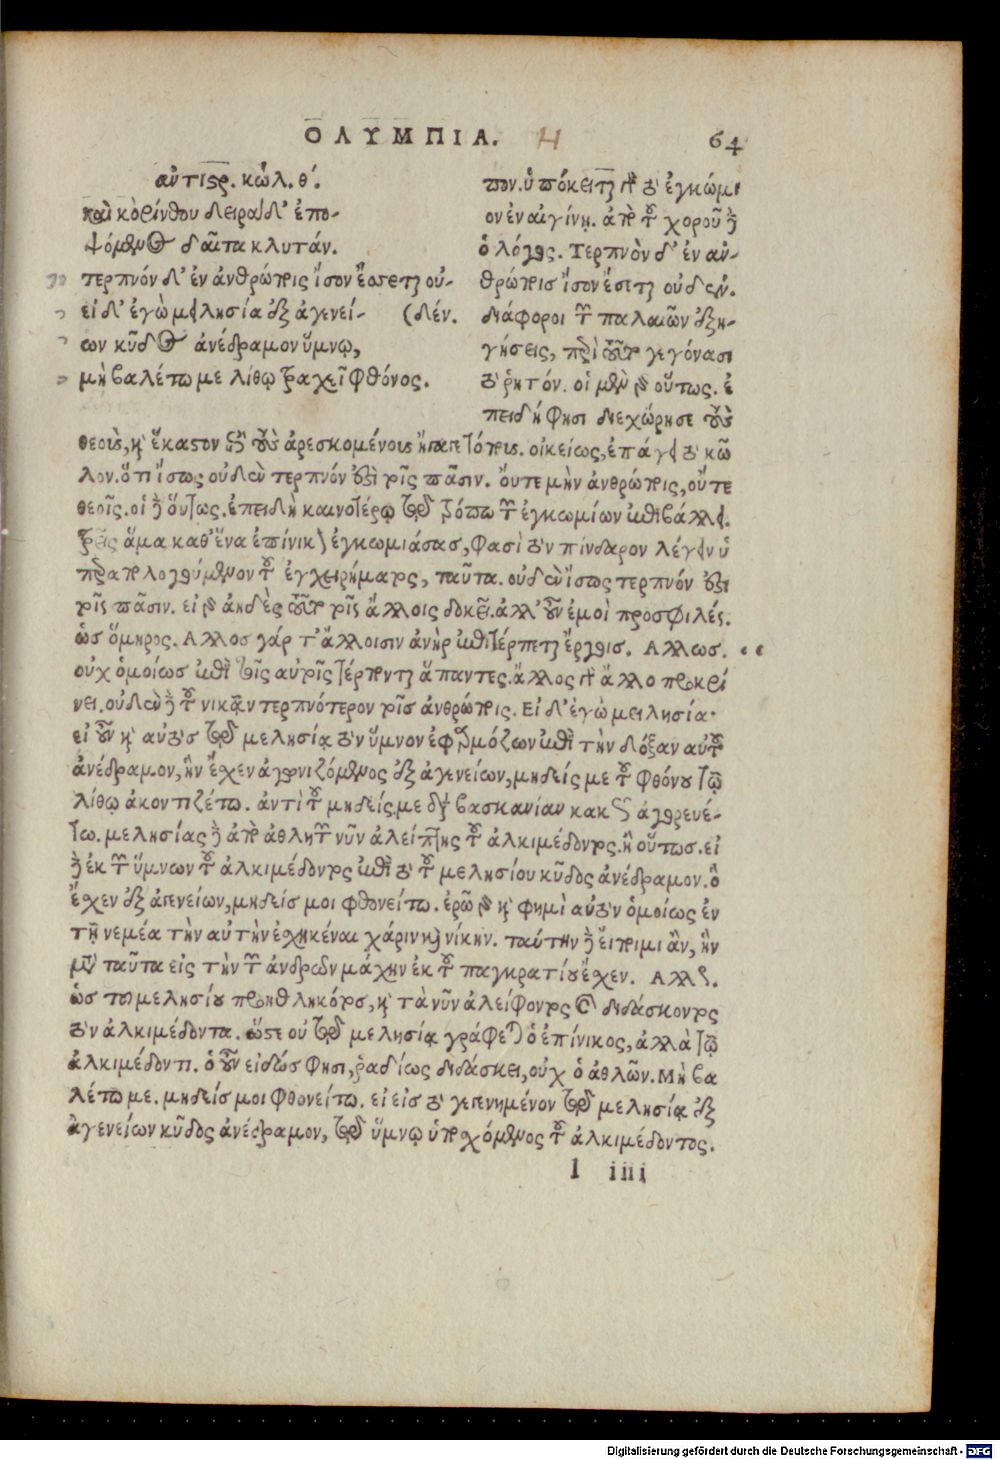 ΟΛΥΜΠΙΑ. Η 64
αντιστρ. κώλ. θ΄.
καὶ κορίνθου δειράδ' ἐπο-
ψόμενος δαῖτα κλυτάν.
τερπνόν δ' ἐν ἀνθρώποις ἴσον ἔσσεται οὐ-
εἰ δ' ἐγὼ μειλησία ἐξ ἀγενεί- (δέν.
ων κῦδος ἀνέδραμον ὕμνῳ,
μὴ βαλέτω με λίθῳ τραχεῖ φθόνος.
πον. ὑπόκειται γὰρ τὸ ἐγκώμι
ον ἐν αἰγίνῃ. ἀπὸ τοῦ χοροῦ δὲ
ὁ λόγος. Τερπνὸν δ' ἐν ἀν-
θρώποισ ἴσον ἔσεται οὐδέν.
διάφοροι τῶν παλαιῶν ἐξη-
γήσεις, περὶ τοῦτο γεγόνασι
τὸ ῥητόν. οἱ μὲν γὰρ οὕτως. ἐ
πειδή φησι διεχώρησε τοὺς
θεοὺς, καὶ ἕκαστον ἀρεσκομένους οἰκείως, ἐπάγει τὸ κῶ
λον. ὅτι ἴσως οὐδὲν τερπνόν ἐστι τοῖς πᾶσιν. οὔτε μὴν ἀνθρώποις, οὔτε
θεοῖς. οἱ δὲ οὕτως. ἐπειδὴ καινοτέρῳ τῷ τρόπῳ τῶν ἐγκωμίων ἐπιβάλλει.
τρεῖς ἅμα καθ' ἕνα ἐπίνικον ἐγκωμιάσας, φασὶ τὸν πίνδαρον λέγειν ὑ
πὲρ ἀπολογούμενον τοῦ ἐγχειρήματος, ταῦτα. οὐδὲν ἴσως τερπνόν ἐστι
τοῖς πᾶσιν. εἰ γὰρ ἀηδὲς τοῦτο τοῖς ἄλλοις δοκεῖ. ἀλλ' οὖν ἐμοὶ προσφιλές.
ὡς ὅμηρος. Αλλος γάρ τ' ἄλλοισιν ἀνὴρ ἐπιτέρπεται ἔργοις. Αλλως.
οὐχ ὁμοίως ἐπὶ τοῖς αὐτοῖς τέρπονται ἅπαντες. ἄλλος γὰρ ἄλλο προκρί
νει. οὐδὲν δὲ τοῦ νικᾶν τερπνότερον τοῖς ἀνθρώποις. Εἰ δ' ἐγὼ μειλησία·
εἰ οὖν καὶ αὐτὸς τῷ μελησίᾳ τὸν ὕμνον ἐφαρμόζων ἐπὶ τὴν δόξαν αὐτοῦ
ἀνέδραμον, ἣν ἔσχεν ἀγωνιζόμενος ἐξ ἀγενείων, μηδείς με τοῦ φθόνου τῷ
λίθῳ ἀκοντιζέτω. ἀντὶ τοῦ μηδείς με διὰ βασκανίαν κακῶς ἀγορευέ-
τω. μελησίας δὲ ἀπὸ ἀθλητῶν νῦν ἀλείπτης τοῦ ἀλκιμέδοντος. ἢ οὕτως. εἰ
δὲ ἐκ τῶν ὕμνων τοῦ ἀλκιμέδοντος ἐπὶ τὸ τοῦ μελησίου κῦδος ἀνέδραμον. ὃ
ἔσχεν ἐξ ἀγενείων, μηδείς μοι φθονείτω. ἐρῶ γὰρ καὶ φημὶ αὐτὸν ὁμοίως ἐν
τῇ νεμέα τὴν αὐτὴν ἐσχηκέναι χάριν κατὰ νίκην. ταύτην δὲ εἴποιμι ἂν, ἣν
μετὰ ταῦτα εἰς τὴν τῶν ἀνδρῶν μάχην ἐκ τοῦ παγκρατίου ἔσχεν. Αλλως.
ὡς του μελησίου προηθληκότος, καὶ τὰ νῦν ἀλείφοντος καὶ διδάσκοντος
τὸν ἀλκιμέδοντα. ὥστε οὐ τῷ μελησίᾳ γράφεται ὁ ἐπίνικος, ἀλλὰ τῷ
ἀλκιμέδοντι. ὁ οὖν εἰδώς φησι, ῥαδίως διδάσκει, οὐχ ὁ ἀθλῶν. Μὴ βα
λέτω με. μηδείς μοι φθονείτω. εἰ εἰς τὸ γεγενημένον τῷ μελησίᾳ ἐξ
ἀγενείων κῦδος ἀνέδραμον, τῷ ὕμνῳ ὑποχόμενος τοῦ ἀλκιμέδοντος.
l iiii
Digitalisierung gefördert durch die Deutsche Forschungsgemeinschaft - DFG